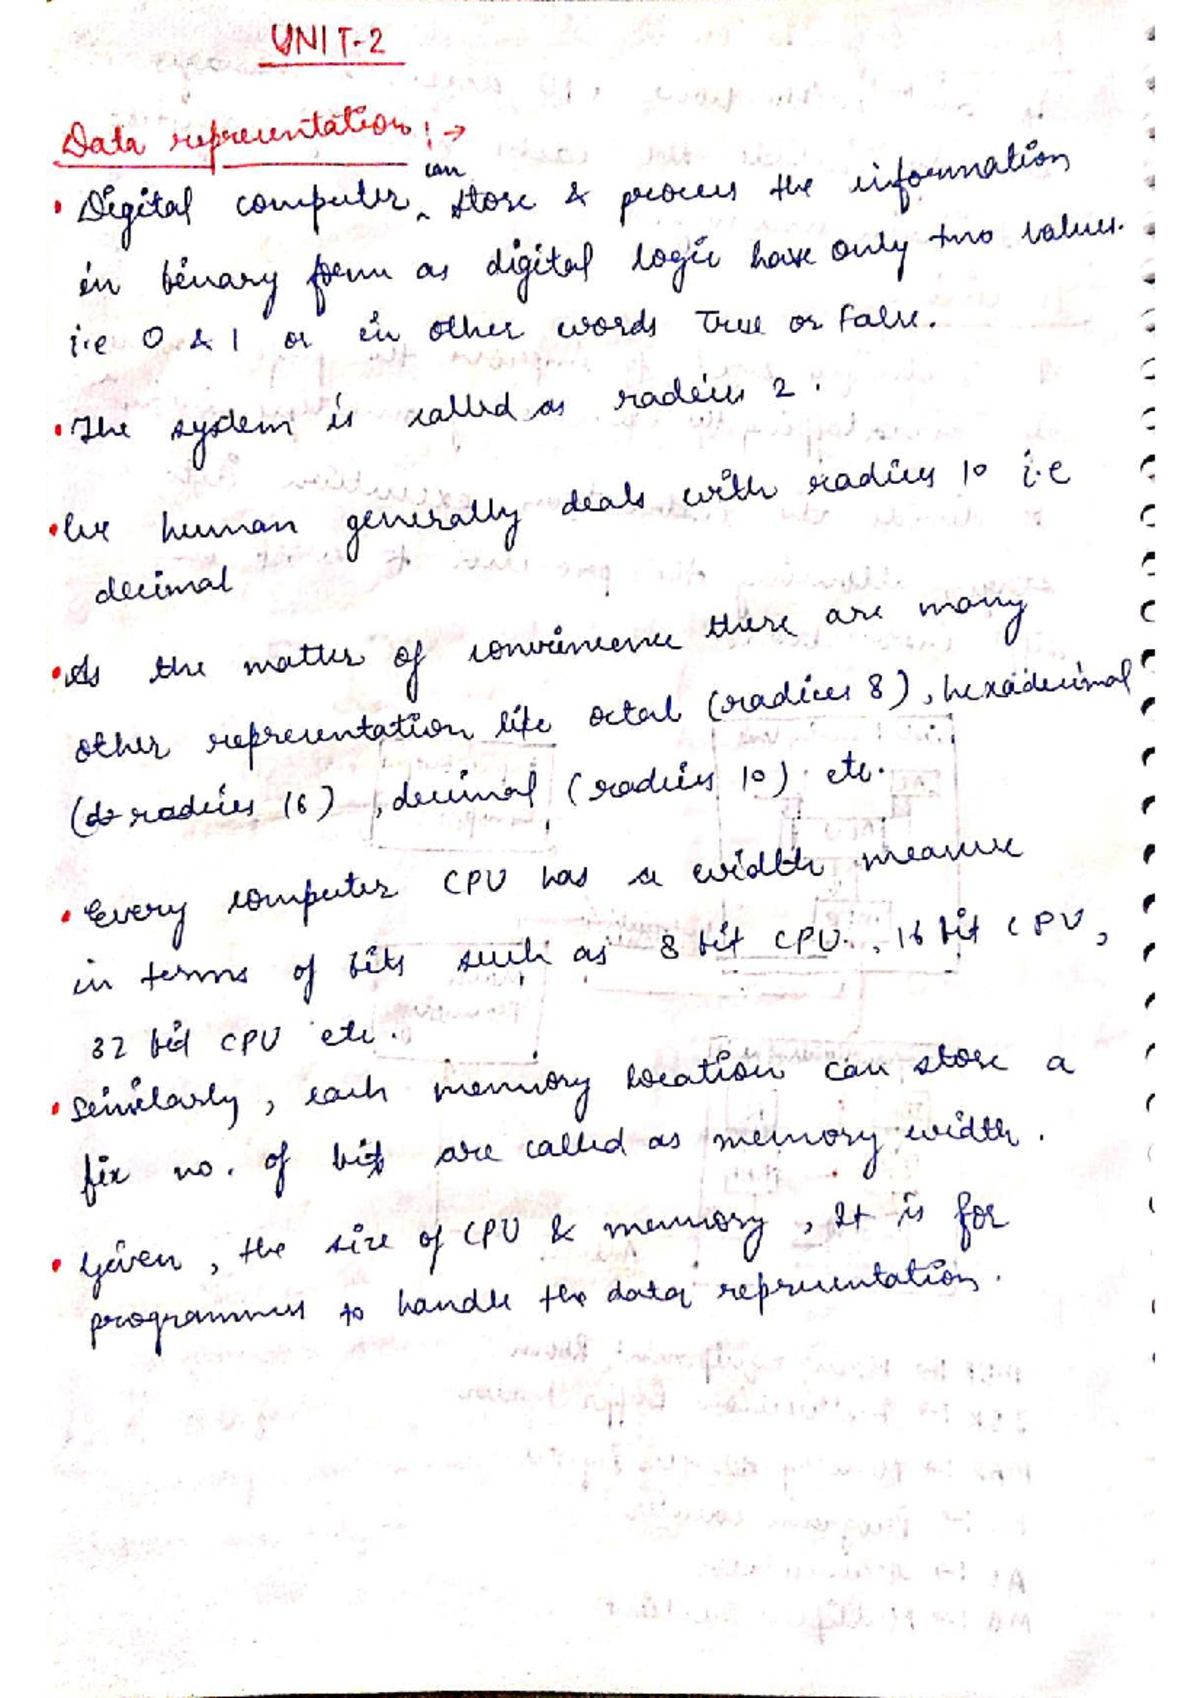 UNIT-2
Data representation :→
• Digital computer can store & process the information
in binary form as digital logic have only two values.
i.e 0 & 1 or in other words True or False.
• The system is called as radius 2.
• We human generally deals with radius 10 i.e
decimal
• As the matter of convenience there are many
other representation like octal (radius 8), hexadecimal
(radius 16), decimal (radius 10) etc.
• Every computer CPU has a width measure
in terms of bits such as 8 bit CPU, 16 bit CPU,
32 bit CPU etc.
• Similarly, each memory location can store a
fix no. of bits are called as memory width.
• Given, the size of CPU & memory, It is for
programmers to handle the data representation.